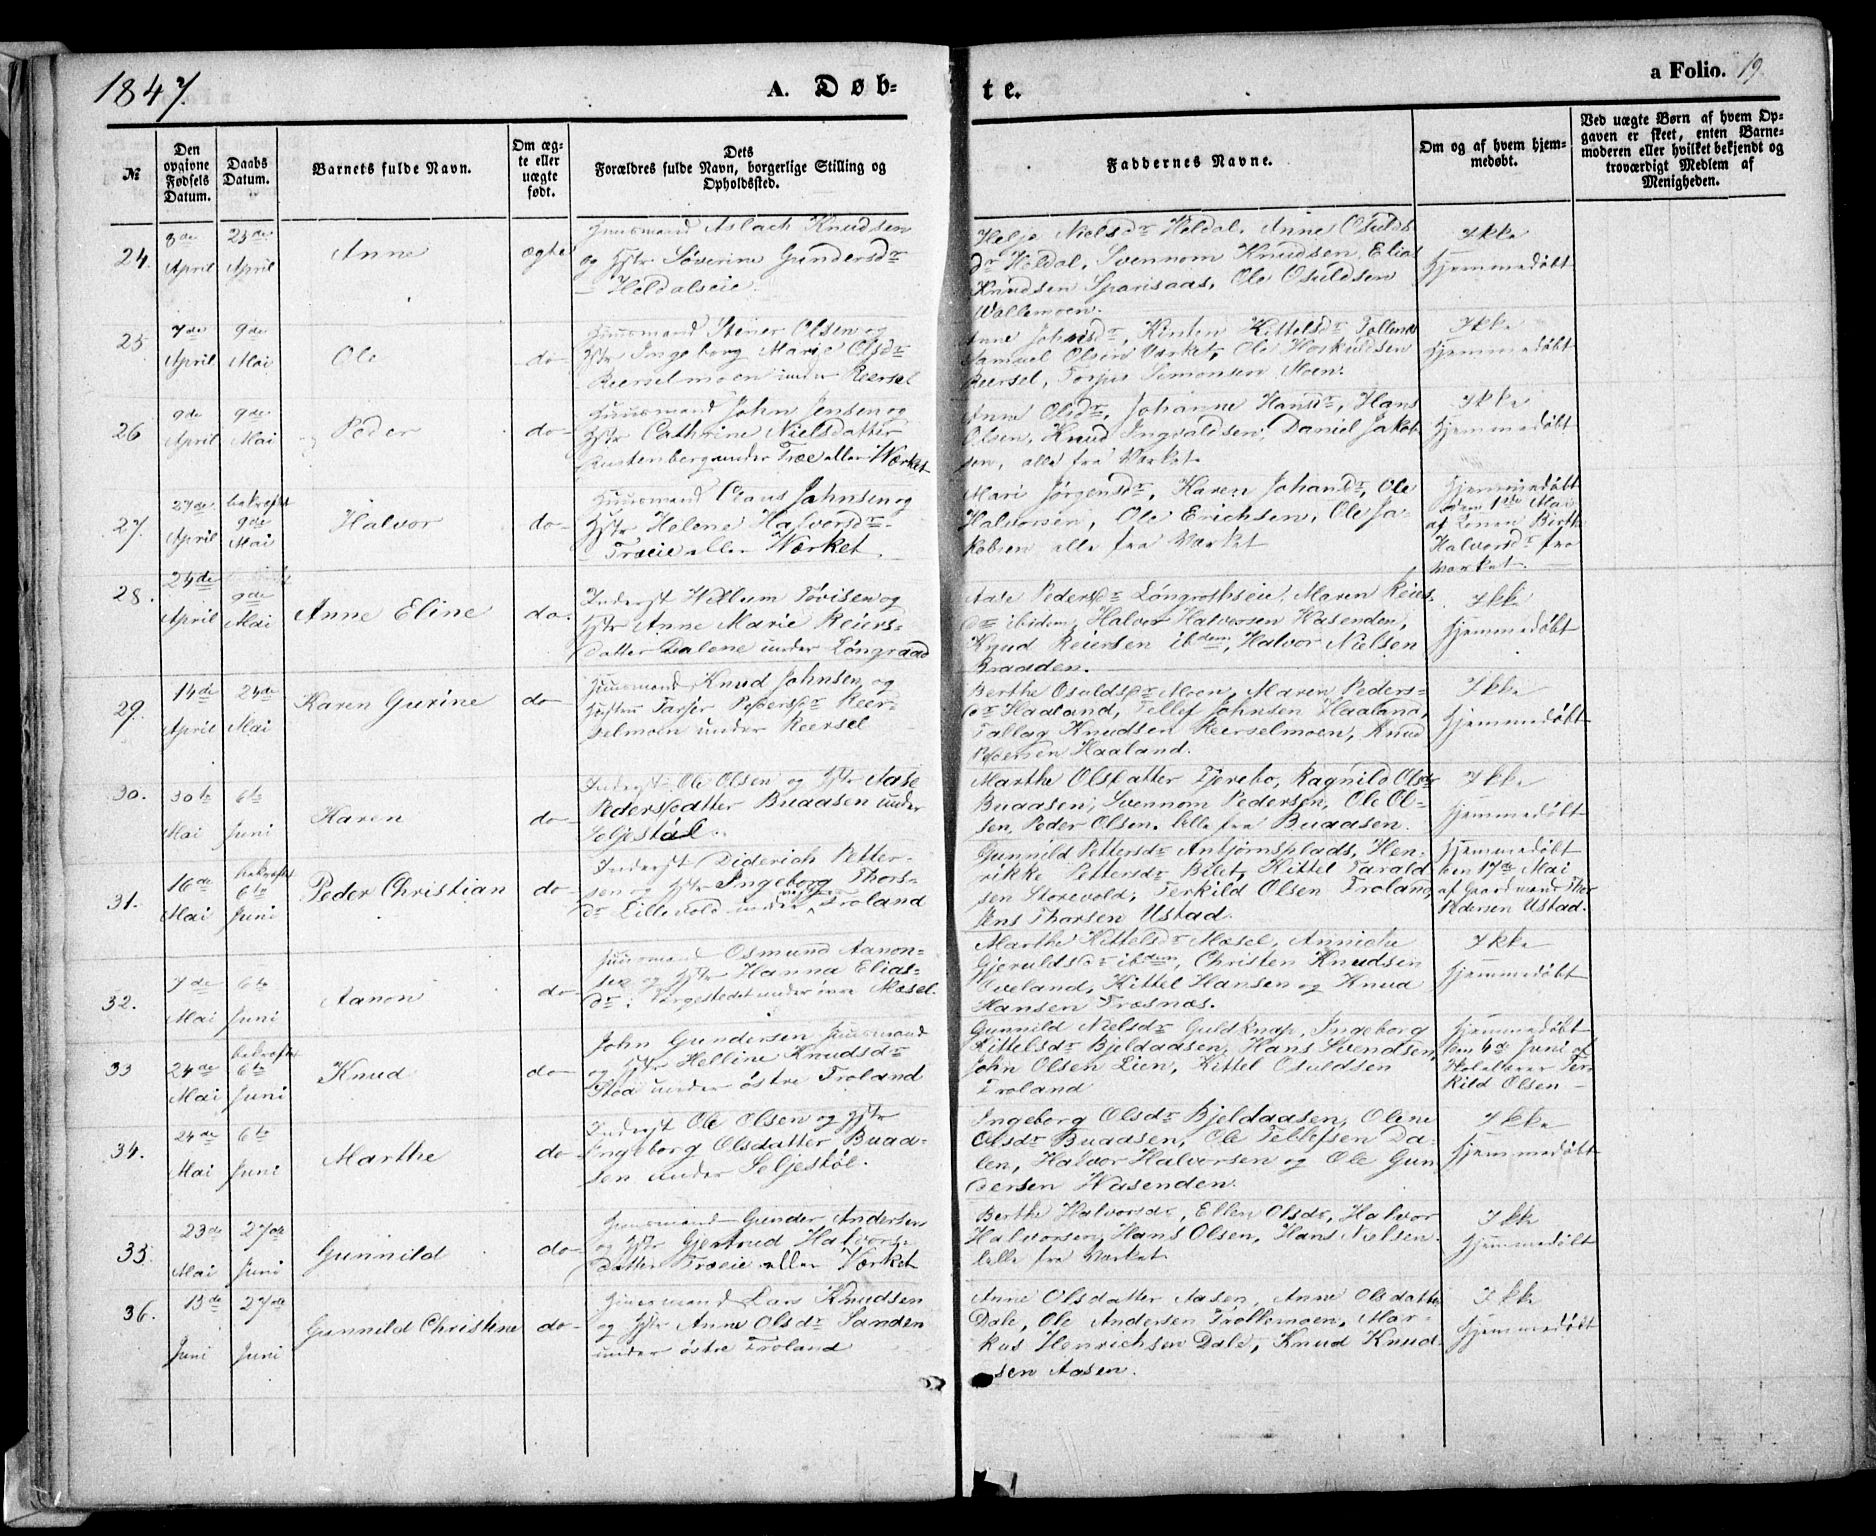 1847.
A. Døb-
te.
a Folio. 19
№
Den opgivne Fødsels Datum.
Daabs Datum.
Barnets fulde Navn.
Om ægte eller uægte født.
Dets Forældres fulde Navn, borgerlige Stilling og Opholdssted.
Faddernes Navne.
Om og af hvem hjemmedøbt.
Ved uægte Børn af hvem Opgaven er skeet, enten Barnemoderen eller hvilket bekjendt og troværdigt Medlem af Menigheden.
24.
8de April
25de April
Anne
ægte
Huusmand Aslach Knudsen
og Hstr Søverine Gundersdr
Holdalseie.
Helje Nielsdr Holdal, Anne Osulds
dr Holdal, Svennom Knudsen, Elias
Knudsen Sparisaas, Ole Osuldsen
Vallemoen.
Ikke
hjemmedøbt
25
7de April
9de Mai
Ole
do
Huusmand Stener Olsen og
Hstr Ingeborg Marie Olsdr
Reerselmoen under Reersel
Anne Johnsdr, Kirsten Kittelsdr
Samuel Olsen Værket, Ole Hoskuldsen
Reersel, Torjus Simonsen Moen.
Ikke
hjemmedøbt
26
9de April
9de Mai
Peder
do
Huusmand John Jensen og
Hstr Cathrine Nielsdatter
Rustenberg under Træe eller Værket
Anne Olsdr, Johanne Hansdr, Hans
Olsen, Knud Ingvaldsen, Daniel Jakob
sen, alle fra Værket
Ikke
hjemmedøbt
27.
27de April
bekræftet 9de Mai
Halvor
do
Huusmand Claus Johnsen og
Hstr Helene Halvorsdr
Træeie eller Værket
Mari Jørgensdr, Karen Johansdr, Ole
Halvorsen, Ole Erichsen, Ole Ja-
kobsen alle fra Værket
Hjemmedøbt
den 1ste Mai
af Konen Birthe
Halvorsdr fra
Værket.
28.
24de April
9de Mai
Anne Eline
do.
Inderst Willum Tovisen og
Hstr Anne Marie Reiers-
datter Dalene under Løngraad
Aase Pedersdr Løngrothseie, Maren Reiers
dr ibidem, Halvor Halvorsen Hasenden,
Knud Reiersen ibdem, Halvor Nielsen
Braaden.
Ikke
hjemmedøbt
29.
14de April
24de Mai
Karen Gurine
do
Huusmand Knud Johnsen og
Hustru Tarjer Pedersdr Reer-
selmoen under Reersel
Berthe Osuldsdr Moen, Maren Peders-
dr Haaland, Tellef Johnsen Haaland,
Tallag Knudsen Reerselmoen, Knud
Pedersen Haaland.
Ikke
hjemmedøbt
30.
30te Mai
6te Juni
Karen
do
Inderst Ole Olsen og Hstr Aase
Pedersdatter Buaasen under
Seljestøl.
Marthe Olsdatter Fjerebo, Ragnild Olsdr
Buaasen, Svennom Pedersen, Ole Ol-
sen, Peder Olsen. alle fra Buaasen.
Ikke
hjemmedøbt
31.
16de Mai
bekræftet 6te Juni
Peder Christian
do
Inderst Diderich Petter-
sen og Hstr Ingeborg Thors-
dr Lillevold under Troland
Gunnild Pettersdr Anbjørnsplads, Hen-
rikke Pettersdr Bilet, Kittel Tarald
sen Storevold, Terkild Olsen Troland,
Jens Thorsen Ustad.
Hjemmedøbt
den 17de Mai
af Gaardmand Thor
Pedersen Ustad.
32.
7de Mai
6te Juni
Aanon
do
Huusmand Osmund Aanon-
sen og Hstr Hanna Elias-
dr. Vargestedet under Mæsel.
Marthe Kittelsdr Mæsel, Anniche
Gjeruldsdr ibdem, Christen Knudsen
Oveland, Kittel Hansen og Knud
Hansen Træsnæs.
Ikke
hjemmedøbt
33
24de Mai
bekræftet 6te Juni
Knud
do
John Gundersen Huusmand
og Hstr Helline Knudsdr
Stoa under østre Troland
Gunnild Nielsdr Guldknap, Ingeborg
Kittelsdr Bjeldaasen, Hans Svendsen,
John Olsen Lien, Kittel Osuldsen
Troland
Hjemmedøbt
den 4de Juni af
Terkild Olsen
34.
24de Mai
6te Juni
Marthe
do
Inderst Ole Olsen og Hstr
Ingeborg Olsdatter Buaa-
sen under Seljestøl.
Ingeborg Olsdr Bjeldaasen, Olene
Olsdr Buaasen, Ole Tellefsen Da-
len, Halvor Halvorsen og Ole Gun
dersen Wasenden.
Ikke
hjemmedøbt
35.
23de Mai
27de Juni
Gunnild
do
Huusmand Gunder Andersen
og Hstr Gjertrud Halvors-
datter Træeie eller Værket
Berthe Halvorsdr, Ellen Olsdr, Halvor
Halvorsen, Hans Olsen, Hans Nielsen
alle fra Værket
Ikke
hjemmedøbt
36.
13de Juni
27de Juni
Gunnild Christine
do
Huusmand Lars Knudsen
og Hstr Anne Olsdr Sanden
under østre Troland
Anne Olsdatter Aasen, Anne Olsdatter
Dale, Ole Andersen Trollemoen, Mar-
kus Henrichsen Dale, Knud Knud-
sen Aasen.
Ikke
hjemmedøbt